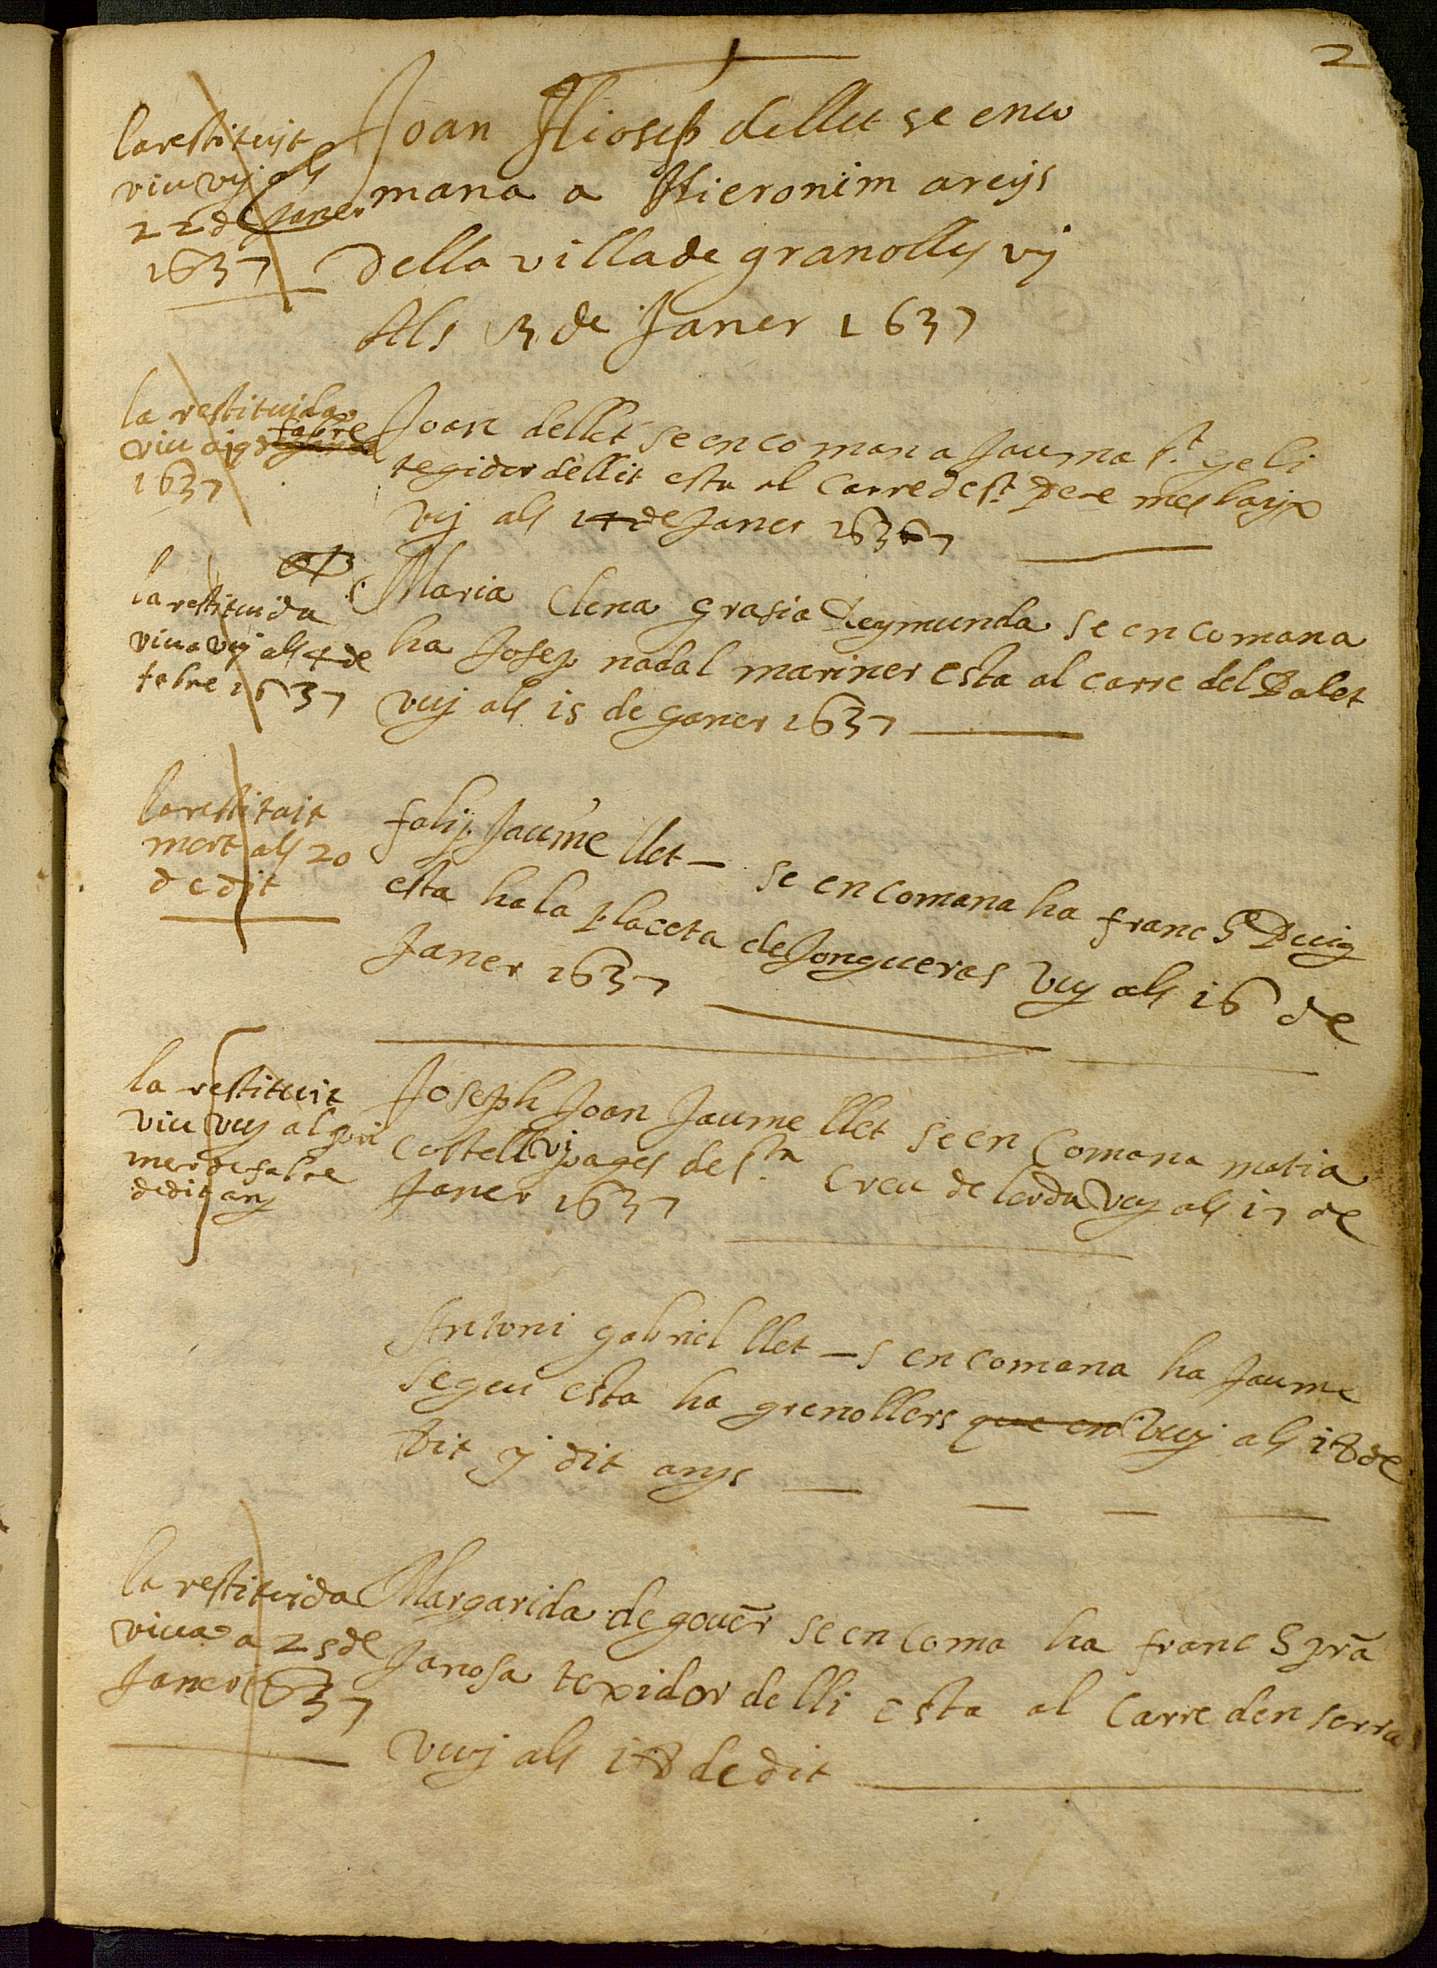 2
la restituit
viu vuj als
22 de Janer
1637
Joan Hiosep dellet se enco
mana a Hieronim areijs
della villa de granolles vj
Als 13 de Janer 1637
la restituida
viu als 8 fabre
1637
Joan dellet se encomana Jauma st geli
tegidor dellit esta al Carre de st Pere mes baijx
Vuj als 14 de Janer 1637
la restituida
viua Vuj als 4 de
febre 1637
Maria Elena grasia Reymunda se encomana
ha Josep nadal mariner esta al carre del Balet
Vuj als 15 de ganer 1637
la restituit
mort als 20
de dit
falip Jaume llet se encomana ha franc Puig
esta ha la placeta de Jongueras Vuj als 16 de
Janer 1637
la restituit
viu Vuj al pri
mer de fabre
de dit any
Joseph Joan Jaume llet se en Comana matia
Costell pages de sta Creu de lorda Vuj als 17 de
Janer 1637
Antoni gabriel llet s encomana ha Jaume
segeu esta ha grenollers que en Vuj als 18 de
dit y dit anys
la restituida
viua a 25 de
Janer 1637
Margarida de gouer se en coma ha franc
Janosa texidor de lli esta al Carre den serra
Vuj als 18 de dit